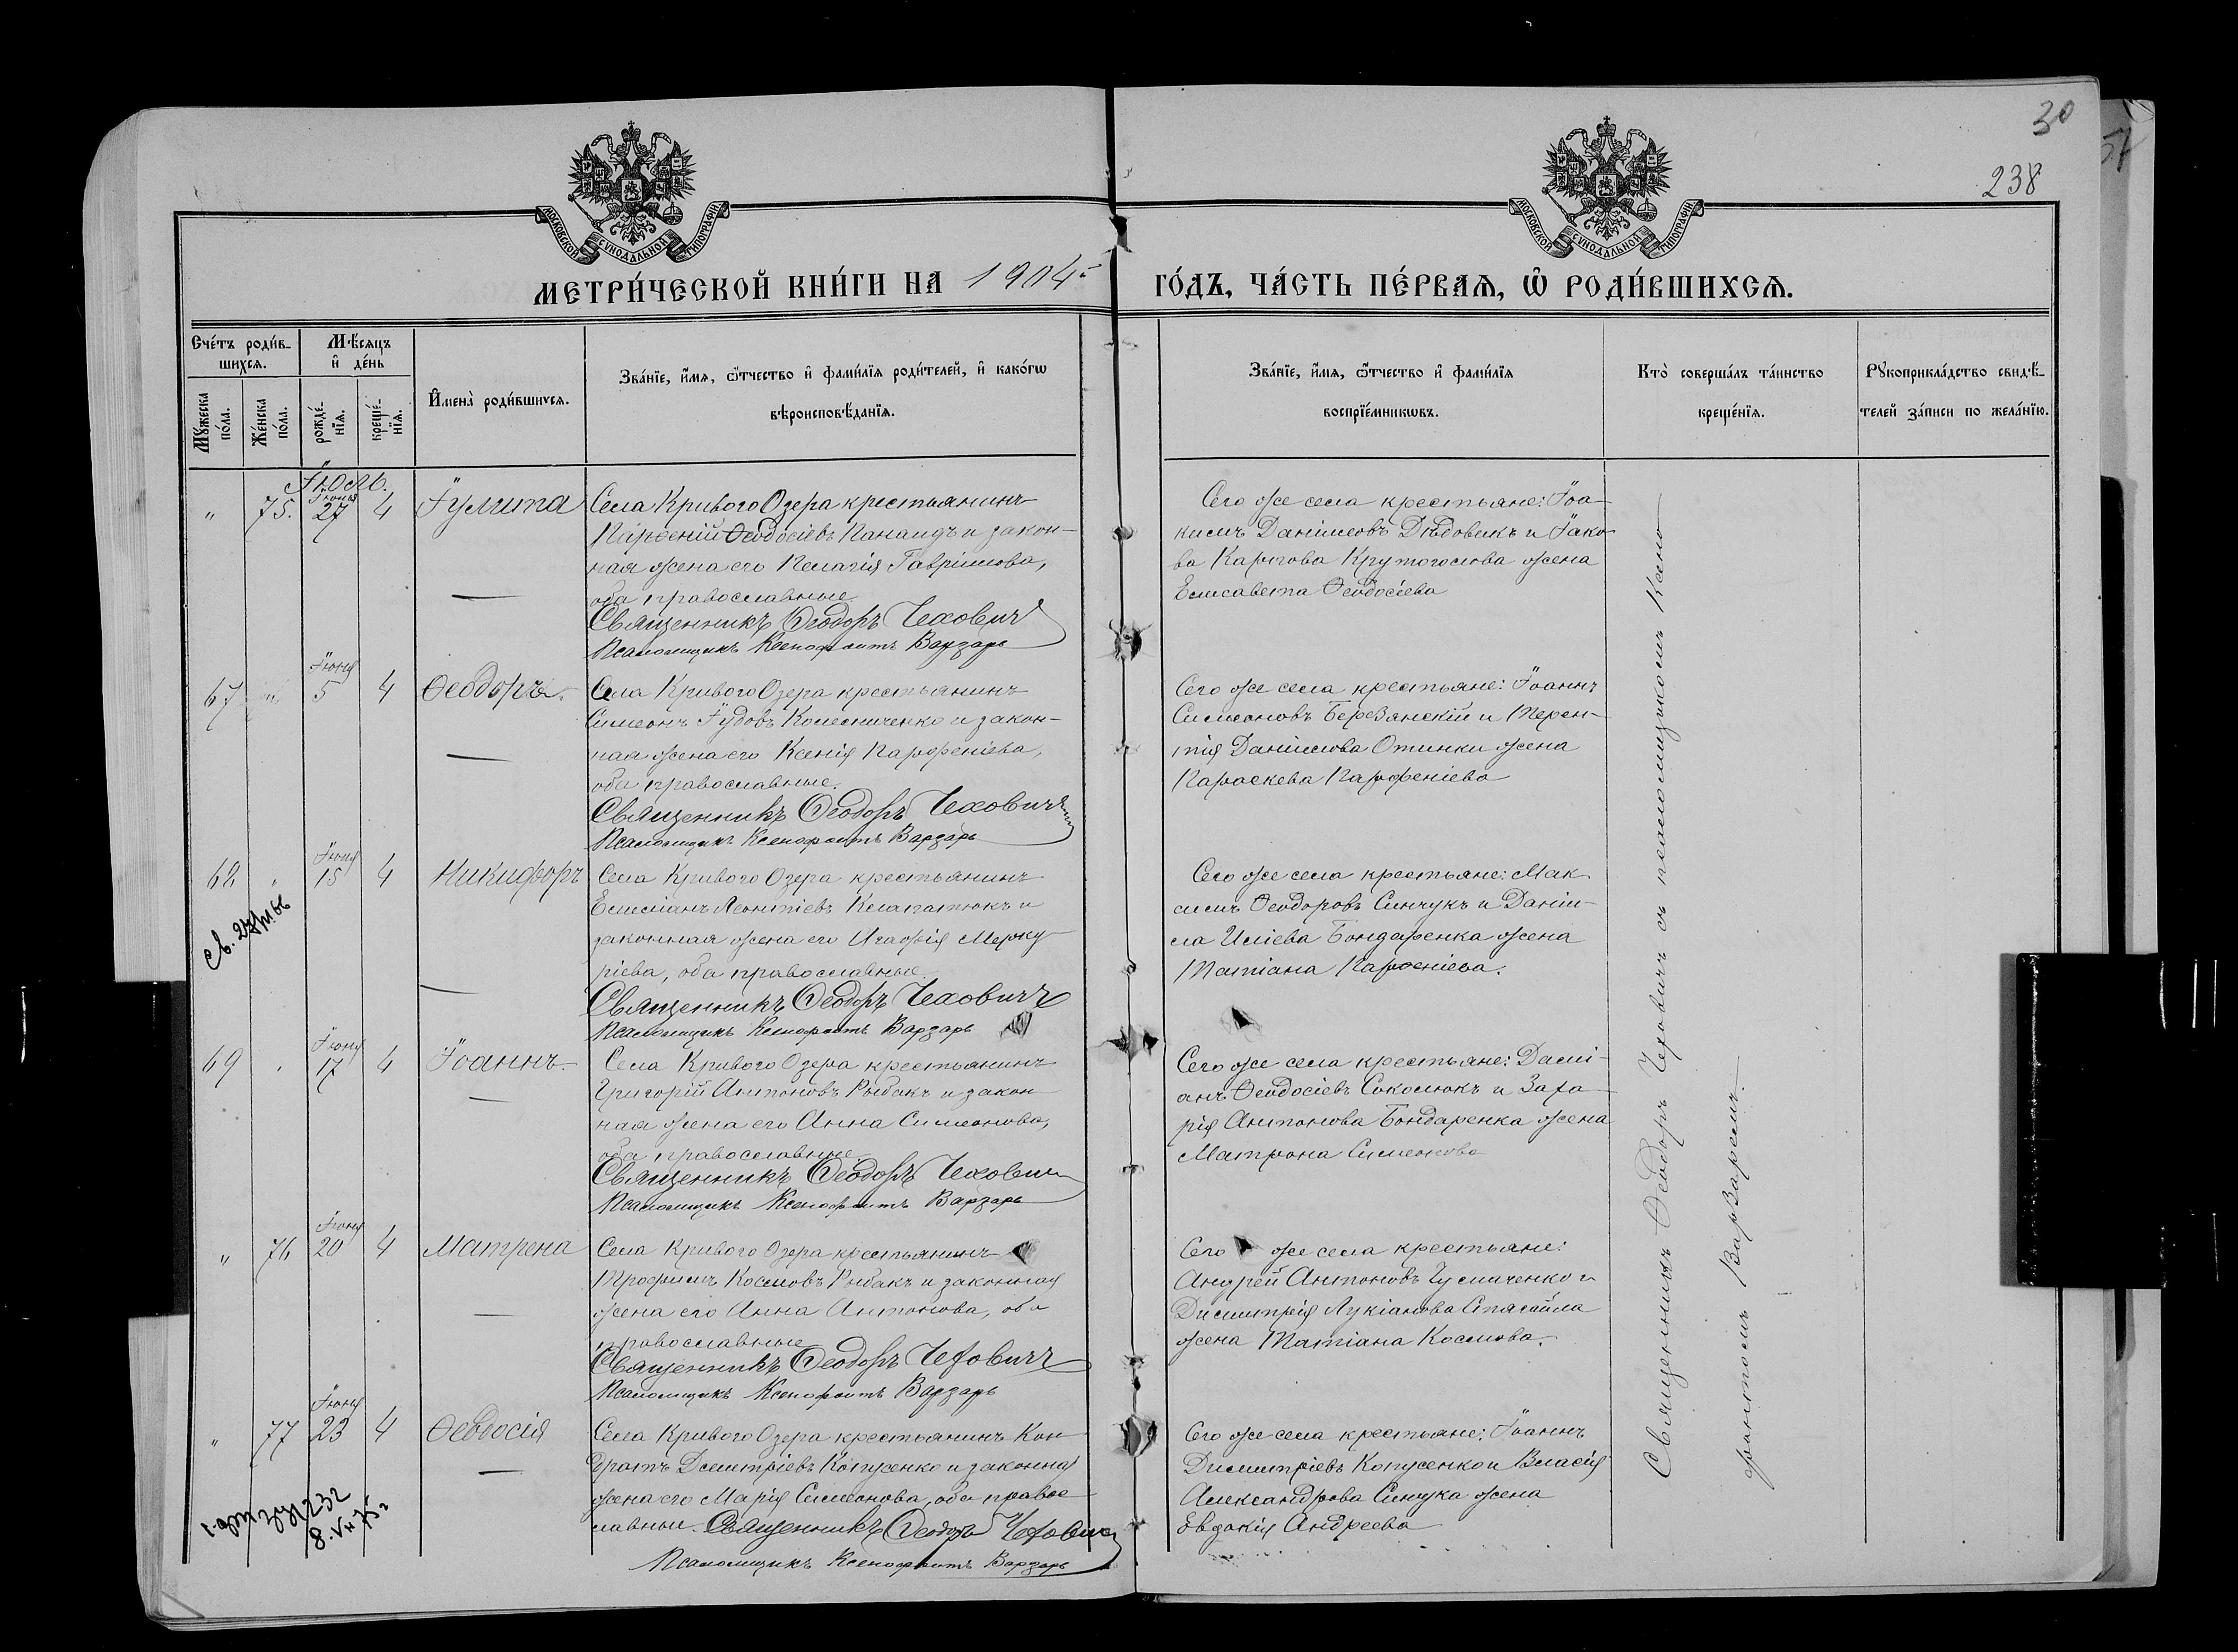 30
238
МОСКОВСКОЙ СУНОДАЛЬНОЙ ТИПОГРАФІИ
МОСКОВСКОЙ СУНОДАЛЬНОЙ ТИПОГРАФІИ
МЕТРИ́ЧЕСКОЙ КНИ́ГИ НА 1904
ГО́ДЪ, ЧА́СТЬ ПЕ́РВАѦ, Ѿ РОДИ́ВШИХСѦ.
Сче́тъ роди́в-
шихсѧ.
Мѣ́сѧцъ
и҆ де́нь
Мꙋ́жеска
по́ла.
Же́нска
по́ла.
рожде́-
нїѧ.
креще́-
нїѧ.
И҆мена̀ роди́вшихсѧ.
Зва́нїе, и҆́мѧ, ѻ҆́тчество и҆ фами́лїѧ роди́телей, и҆ како́гѡ
вѣроисповѣ́данїѧ.
Зва́нїе, и҆́мѧ, ѻ҆́тчество и҆ фами́лїѧ
воспрїе́мникѡвъ.
Кто̀ соверша́лъ та́инство
креще́нїѧ.
Рꙋкоприкла́дство свидѣ́-
телей за́писи по жела́нїю.
Іюль.
" 75. Іюня 27 4 Іулита
Села Кривого Озера крестьянинъ
Парѳеній Ѳеодосіевъ Канаидъ и закон-
ная жена его Пелагія Гавріилова,
оба православные
Священникъ Ѳеодоръ Чеховичъ
Псаломщикъ Ксенофонтъ Варзарь
Сего же села крестьяне: Іоа-
кимъ Даніиловъ Дѣдовикъ и Іако
ва Карпова Крутоголова жена
Елисавета Ѳеодосіева
67 " Іюня 5 4 Ѳеодоръ.
Села Кривого Озера крестьянинъ
Симеонъ Іудовъ Колесниченко и закон-
ная жена его Ксенія Парѳеніева,
оба православные.
Священникъ Ѳеодоръ Чеховичъ
Псаломщикъ Ксенофонтъ Варзарь
Сего же села крестьяне: Іоаннъ
Симеоновъ Березянскій и Терен-
тія Даніилова Отинки жена
Параскева Парѳеніева
68 " Іюня 15 4 Никифоръ
Села Кривого Озера крестьянинъ
Емиліанъ Леонтіевъ Клапатюкъ и
законная жена его Агафія Мерку
ріева, оба православные.
Священникъ Ѳеодоръ Чеховичъ
Псаломщикъ Ксенофонтъ Варзарь
Сего же села крестьяне: Мак
симъ Ѳеодоровъ Синчукъ и Даніи-
ла Иліева Бондаренка жена
Татіана Парѳеніева.
69 " Іюня 17 4 Іоаннъ
Села Кривого Озера крестьянинъ
Григорій Антоновъ Рыбакъ и закон
ная жена его Анна Симеонова,
оба православные
Священникъ Ѳеодоръ Чеховичъ
Псаломщикъ Ксенофонтъ Варзарь
Сего же села крестьяне: Дамі-
анъ Ѳеодосіевъ Соколюкъ и Заха
рія Антонова Бондаренка жена
Матрона Симеонова
" 76 Іюня 20 4 Матрена
Села Кривого Озера крестьянинъ
Трофимъ Космовъ Рыбакъ и законная
жена его Анна Антонова, оба
православные
Священникъ Ѳеодоръ Чеховичъ
Псаломщикъ Ксенофонтъ Варзарь
Сего же села крестьяне:
Андрей Антоновъ и
Димитрія Лукіанова жена Татіана Космова.
" 77 Іюня 23 4 Ѳеодосія
Села Кривого Озера крестьянинъ Кон
дратъ Димитріевъ Копусенко и законная
жена его Марія Симеонова, оба правос
лавные. Священникъ Ѳеодоръ Чеховичъ
Псаломщикъ Ксенофонтъ Варзарь
Сего же села крестьяне: Іоаннъ
Димитріевъ Копусенко и Власія
Александрова Синчука жена
Евдокія Андреева
Священникъ Ѳеодоръ Чеховичъ съ псаломщикомъ Ксено-
фонтомъ Варзаремъ.